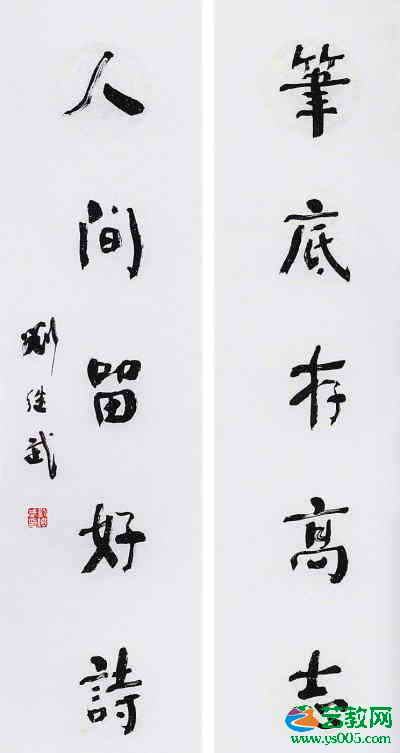 筆底存高志
人间留好詩
刘继武
艺教网
www.ys005.com